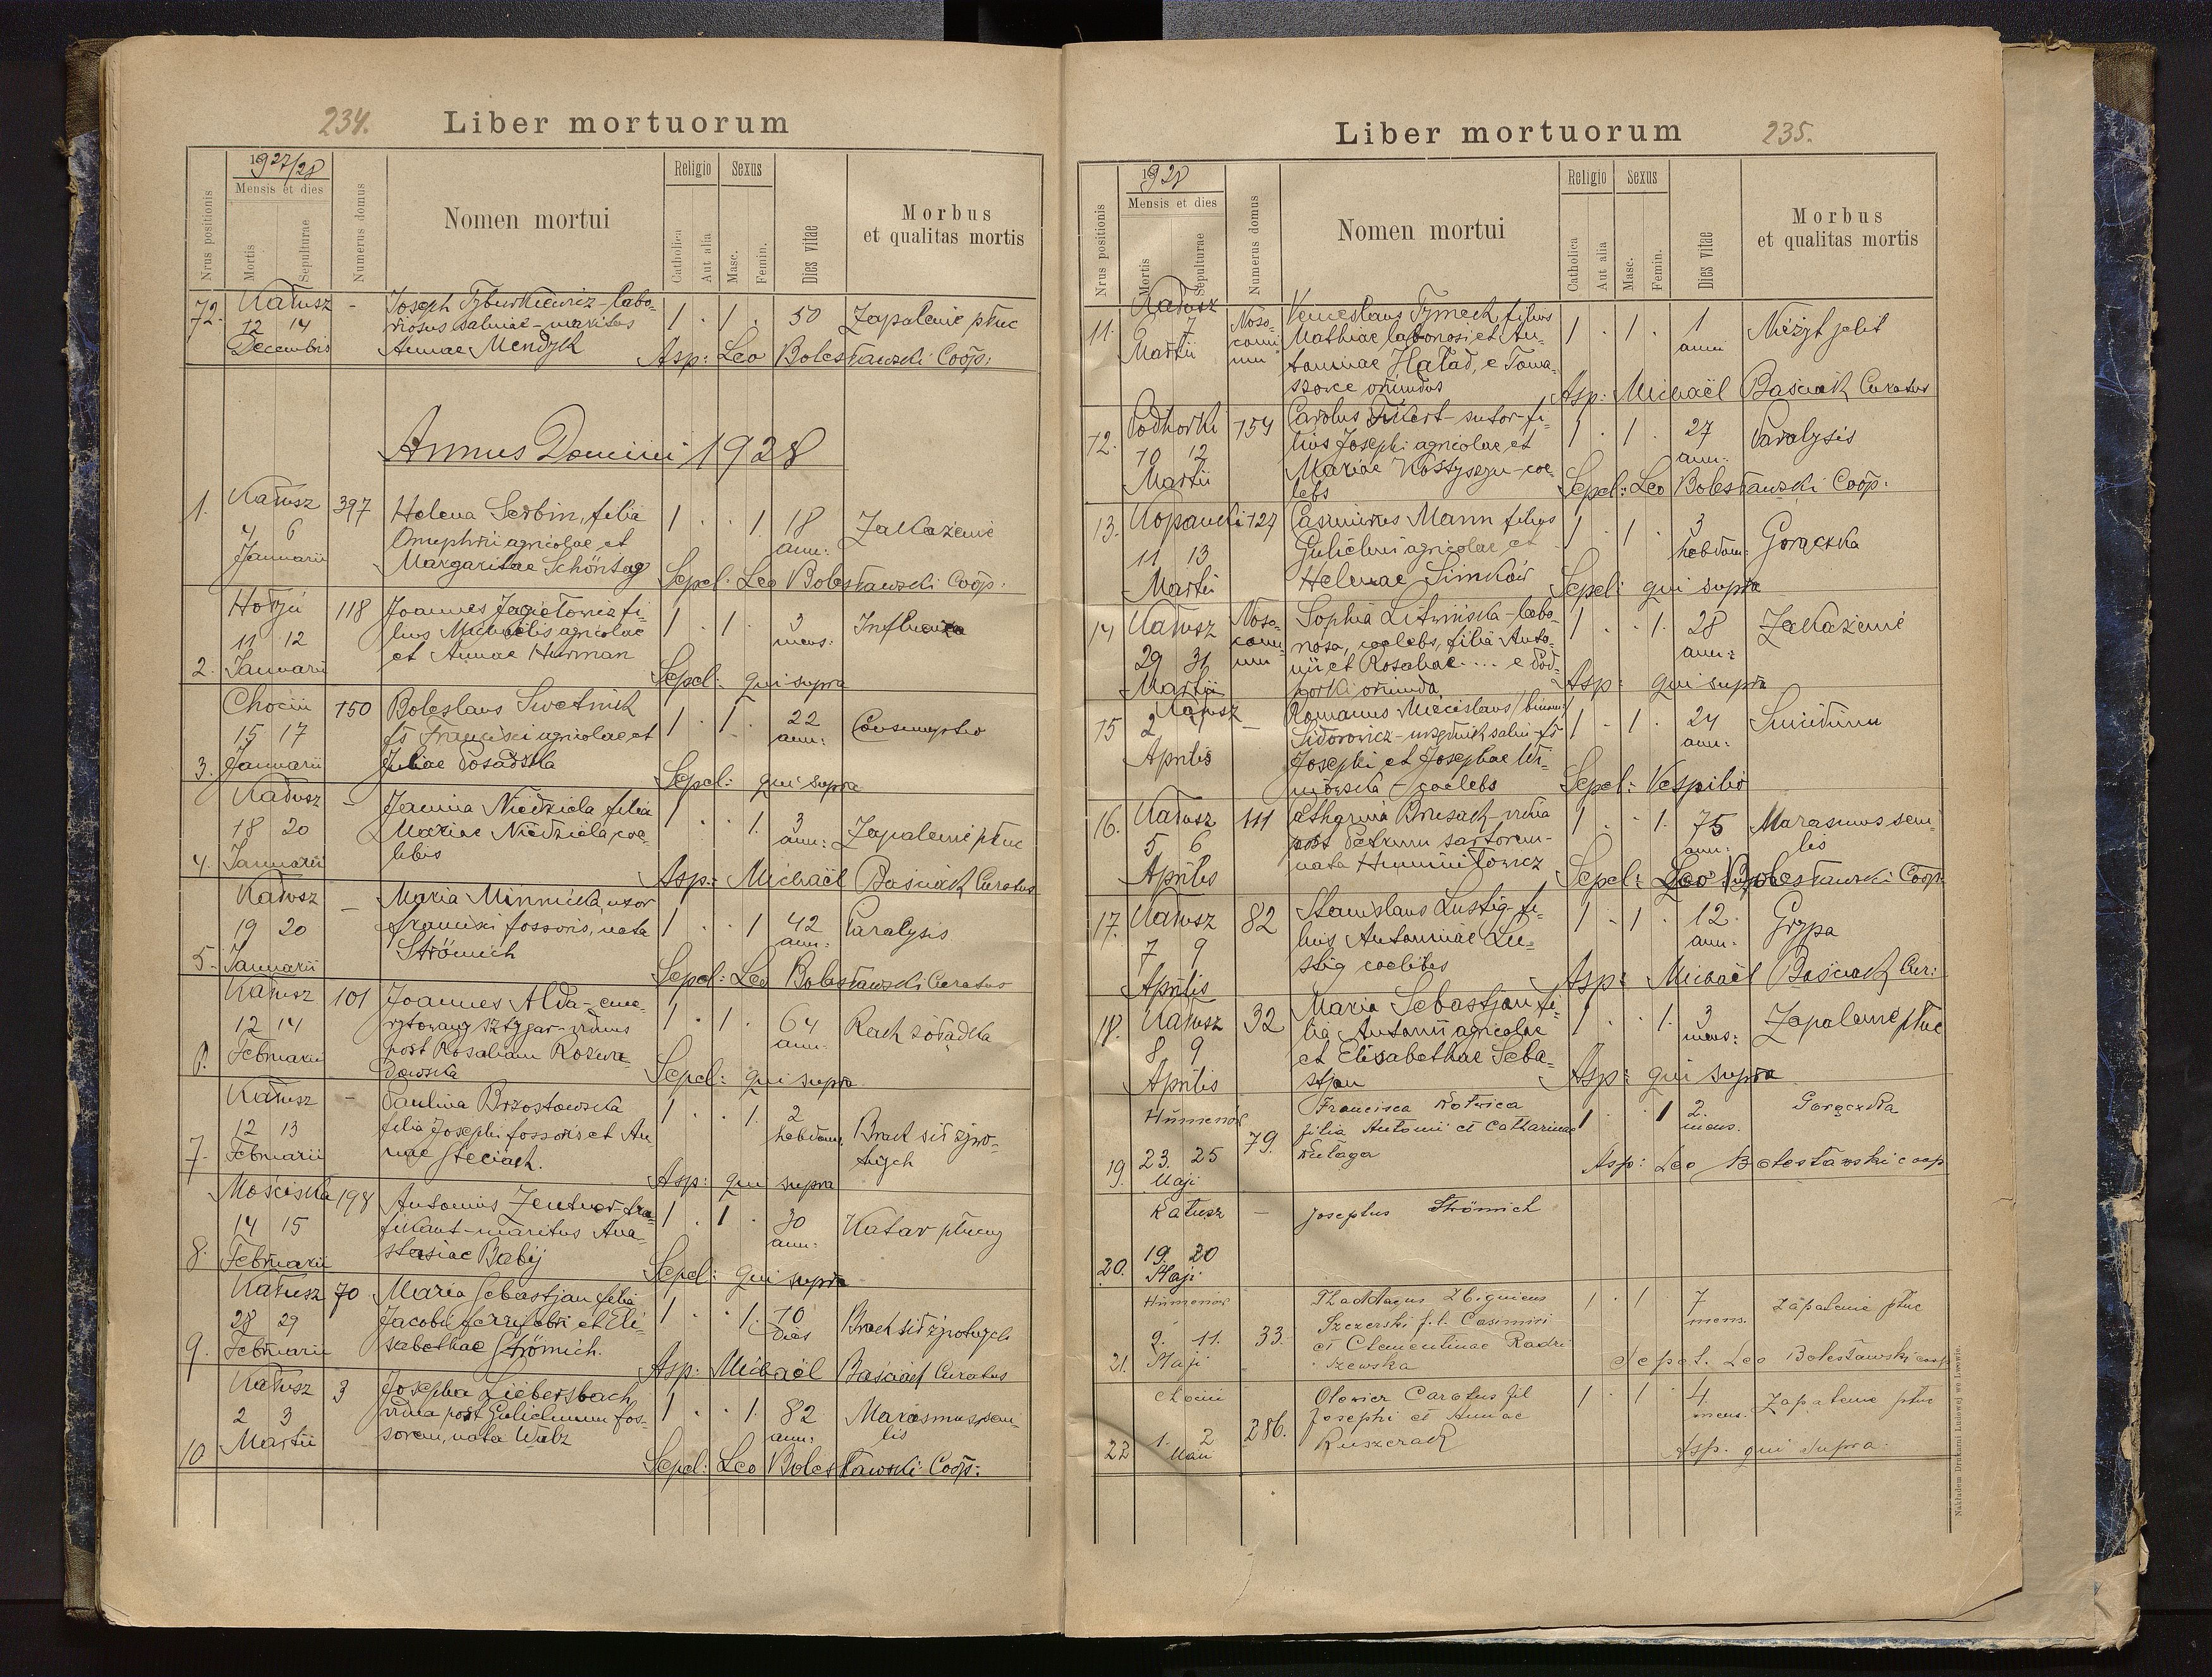 234.
Liber mortuorum
Nrus positionis
1927/28
Mensis et dies
Mortis
Sepulturae
Numerus domus
Nomen mortui
Religio
Catholica
Aut alia
Sexus
Masc.
Femin.
Dies vitae
Morbus
et qualitas mortis
72. Kałusz - Joseph Tyburkiewicz - labo-
12 14 riosus salinae - maritus 1 . 1 . 50 Zapalenie płuc
Decembris Annae Mendyk
Asp: Leo Bolesławski Coop:
Annus Domini 1928
1. Kałusz 397 Helena Serbin, filia
4 6 Onuphrii agricolae et 1 . . 1 18 Zakażenie
Januarii Margaritae Schöntag ann:
Sepel: Leo Bolesławski Coop:
Hołyń 118 Joannes Jagiełowicz fi-
11 12 lius Michaelis agricolae 1 . 1 . 3 Influenza
2. Januarii et Annae Hurman mens:
Sepel: qui supra
Chocin 150 Boleslaus Swetnick
15 17 fs Francisci agricolae et 1 . 1 . 22 Consumptio
3. Januarii Juliae Posadska ann:
Sepel: qui supra
Kałusz - Janina Niedziela filia
18 20 Mariae Niedziela, coe- 1 . . 1. 3 Zapalenie płuc
4. Januarii libis ann:
Asp: Michaël Baściak Curatus
Kałusz - Maria Minnicka, uxor
19 20 Francisci fossoris, nata 1 . . 1 42 Paralysis
5. Januarii Strömich ann:
Sepel: Leo Bolesławski Curatus
Kałusz 101 Joannes Alda - eme-
12 14 rytowany sztygar - viduus 1 . 1 . 64 Rach żołądka
6. Februarii post Rosaliam Rozwa- ann:
dowska
Sepel: qui supra
Kałusz - Paulina Brzostowska
12 13 filia Josephi fossoris et An- 1 . . 1. 2 Brak sił żywo-
7. Februarii nae Steciach. hebdom. tnych
Asp: qui supra
Mościska 198 Antonius Zentner - tra-
14 15 fikant - maritus Ana- 1 . 1 . 30 Katar płucny
8. Februarii stasiae Babij ann:
Sepel: qui supra
Kałusz 70 Maria Sebastjan filia
28 29 Jacobi ferrifabri et Eli- 1 . . 1. 10 Brak sił żywotnych
9. Februarii sabethae Strömich. dies
Asp: Michaël Baściak Curatus
Kałusz 3 Josepha Liebersbach
2 3 vidua post Gulielmum fos- 1 . . 1. 82 Marasmus seni-
10 Martii sorem, nata Walz ann: lis
Sepel: Leo Bolesławski Coop:
Liber mortuorum
235.
Nrus positionis
1928
Mensis et dies
Mortis
Sepulturae
Numerus domus
Nomen mortui
Religio
Catholica
Aut alia
Sexus
Masc.
Femin.
Dies vitae
Morbus
et qualitas mortis
Kałusz Venceslaus Tymech, filius
11. 6 7 Noso- Mathiae laboriosi et An- 1 . 1 . 1 Nieżyt jelit
Martii comi- toninae Haład, e Toma- anni
um szowce oriundus
Asp: Michaël Baściak Curatus
12. Podhorki 154 Carolus Fikert - sutor - fi-
10 12 lius Josephi agricolae et 1 . 1 . 27 Paralysis
Martii Mariae Kostyszyn - coe- ann:
lebs
Sepel: Leo Bolesławski Coop:
13. Kopanki 127 Casimirus Mann filius
11 13 Gulielmi agricolae et 1 . 1 . 3 Gorączka
Martii Helenae Simków hebdom:
Sepel: qui supra
14 Kałusz Noso- Sophia Litwińska - labo-
29 31 comi- riosa, coelebs, filia Anto- 1 . . 1. 28 Zakażenie
Martii um nii et Rosaliae .... e Pod- ann:
horki oriunda
Asp: qui supra
15 Kałusz - Romanus Miecislaus / binom/
2 Sidorowicz - urzędnik salin - fs 1 . 1 . 24 Suicidium
Aprilis Josephi et Josephae Wi- ann:
niówska - coelebs
Sepel: Vespillo
16. Kałusz 111 Catharina Brusach - vidua
5 6 post Petrum sartorem - 1 . . 1. 75 Marasmus seni-
Aprilis nata Humniłowicz ann: lis
Sepel: Leo Bolesławski Coop
17. Kałusz 82 Stanislaus Lustig - fi-
7 9 lius Antoninae Lu- 1 . 1 . 12 Grypa
Aprilis stig coelibis ann:
Asp: Michaël Baściak Cur:
18. Kałusz 32 Maria Sebastjan fi-
8 9 lia Antonii agricolae 1 . . 1. 3 Zapalenie płuc
Aprilis et Elisabethae Seba- mens:
stjan
Asp: qui supra
Humenów Francisca Kotwica
19. 23. 25 79. filia Antonii et Catharinae 1 . . 1 2. Gorączka
Maji Kułaga mens.
Asp: Leo Bolesławski coop
Kałusz - Josephus Strömich
20. 19. 20
Maji
Humenów Thaddaeus Zbignieus
21. 9. 11. 33. Szczerski f.l. Casimiri 1 . 1 . 7 zapalenie płuc
Maji et Clementinae Radzi- mens.
szewska
Sepel. Leo Bolesławski coop
Chocin Olewicz Carolus fil
22 1. 2 286. Josephi et Annae 1 . 1 . 4 Zapalenie płuc
Maii Ruszczak mens.
Asp. qui supra.
Nakładem Drukarni Ludowej we Lwowie.